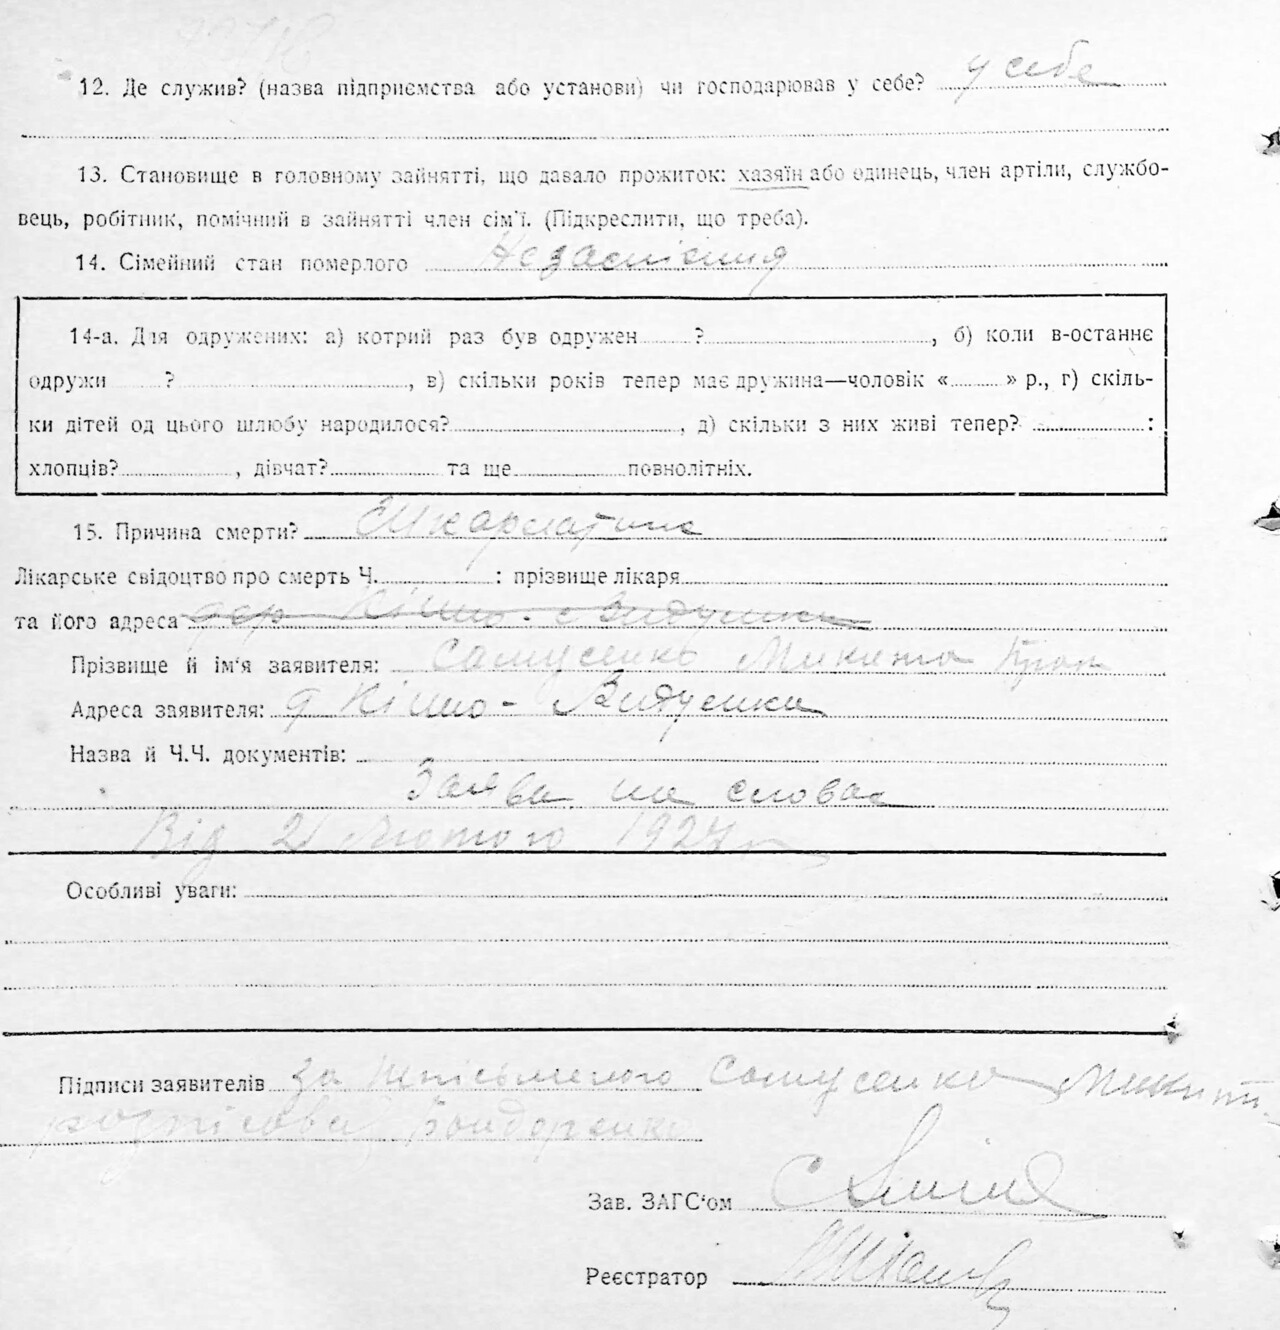 12. Де служив? (назва підприємства або установи) чи господарював у себе? у себе
13. Становище в головному зайнятті, що давало прожиток: хазяїн або одинець, член артіли, службо-
вець, робітник, помічний в зайнятті член сім'ї. (Підкреслити, що треба).
14. Сімейний стан померлого
14-а. Для одружених: а) котрий раз був одружен ? , б) коли в-останнє
одружи ? , в) скільки років тепер має дружина—чоловік « » р., г) скіль-
ки дітей од цього шлюбу народилося? , д) скільки з них живі тепер? :
хлопців? , дівчат? та ще повнолітніх.
15. Причина смерти? Шкарлатина
Лікарське свідоцтво про смерть Ч. : прізвище лікаря
та його адреса
Прізвище й ім'я заявителя: Самусенко Микита
Адреса заявителя:
Назва й Ч.Ч. документів:
Заява на словах
Від 2 Лютого 1927 р
Особливі уваги:
Підписи заявителів За Самусенко
розписавсь Бондаренко
Зав. ЗАГС'ом
Реєстратор